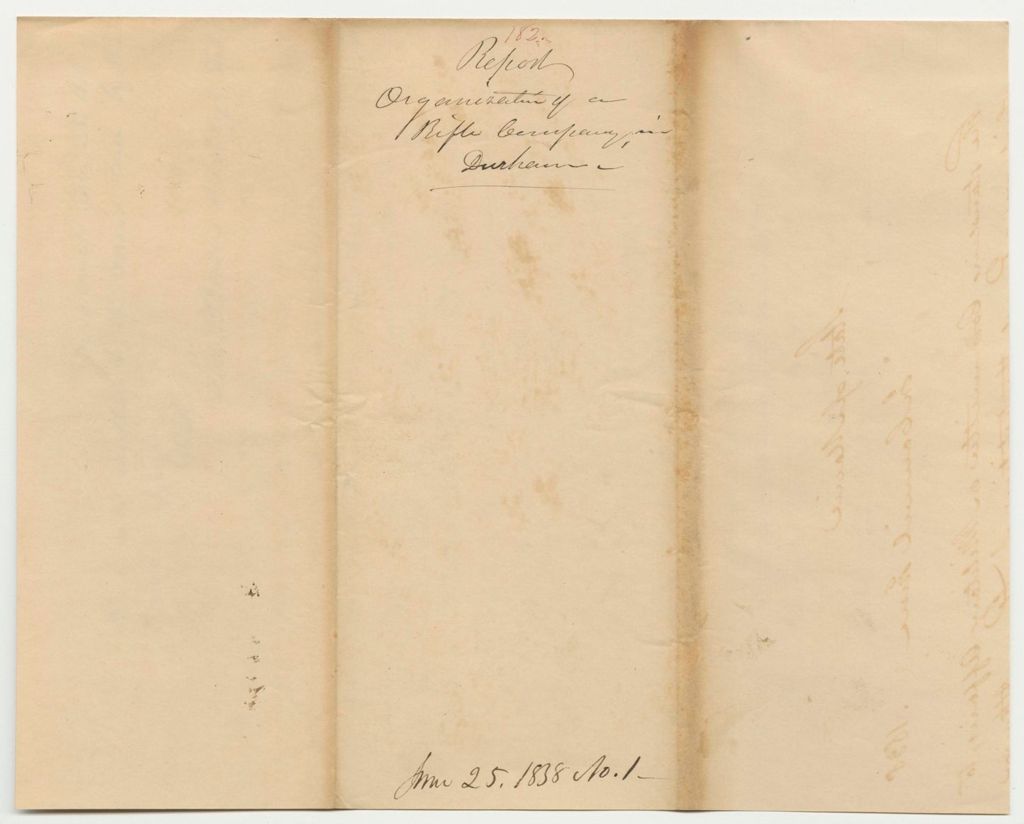 182.
Report
Organization of a
Rifle Company, in
Durham
June 25. 1838 No. 1